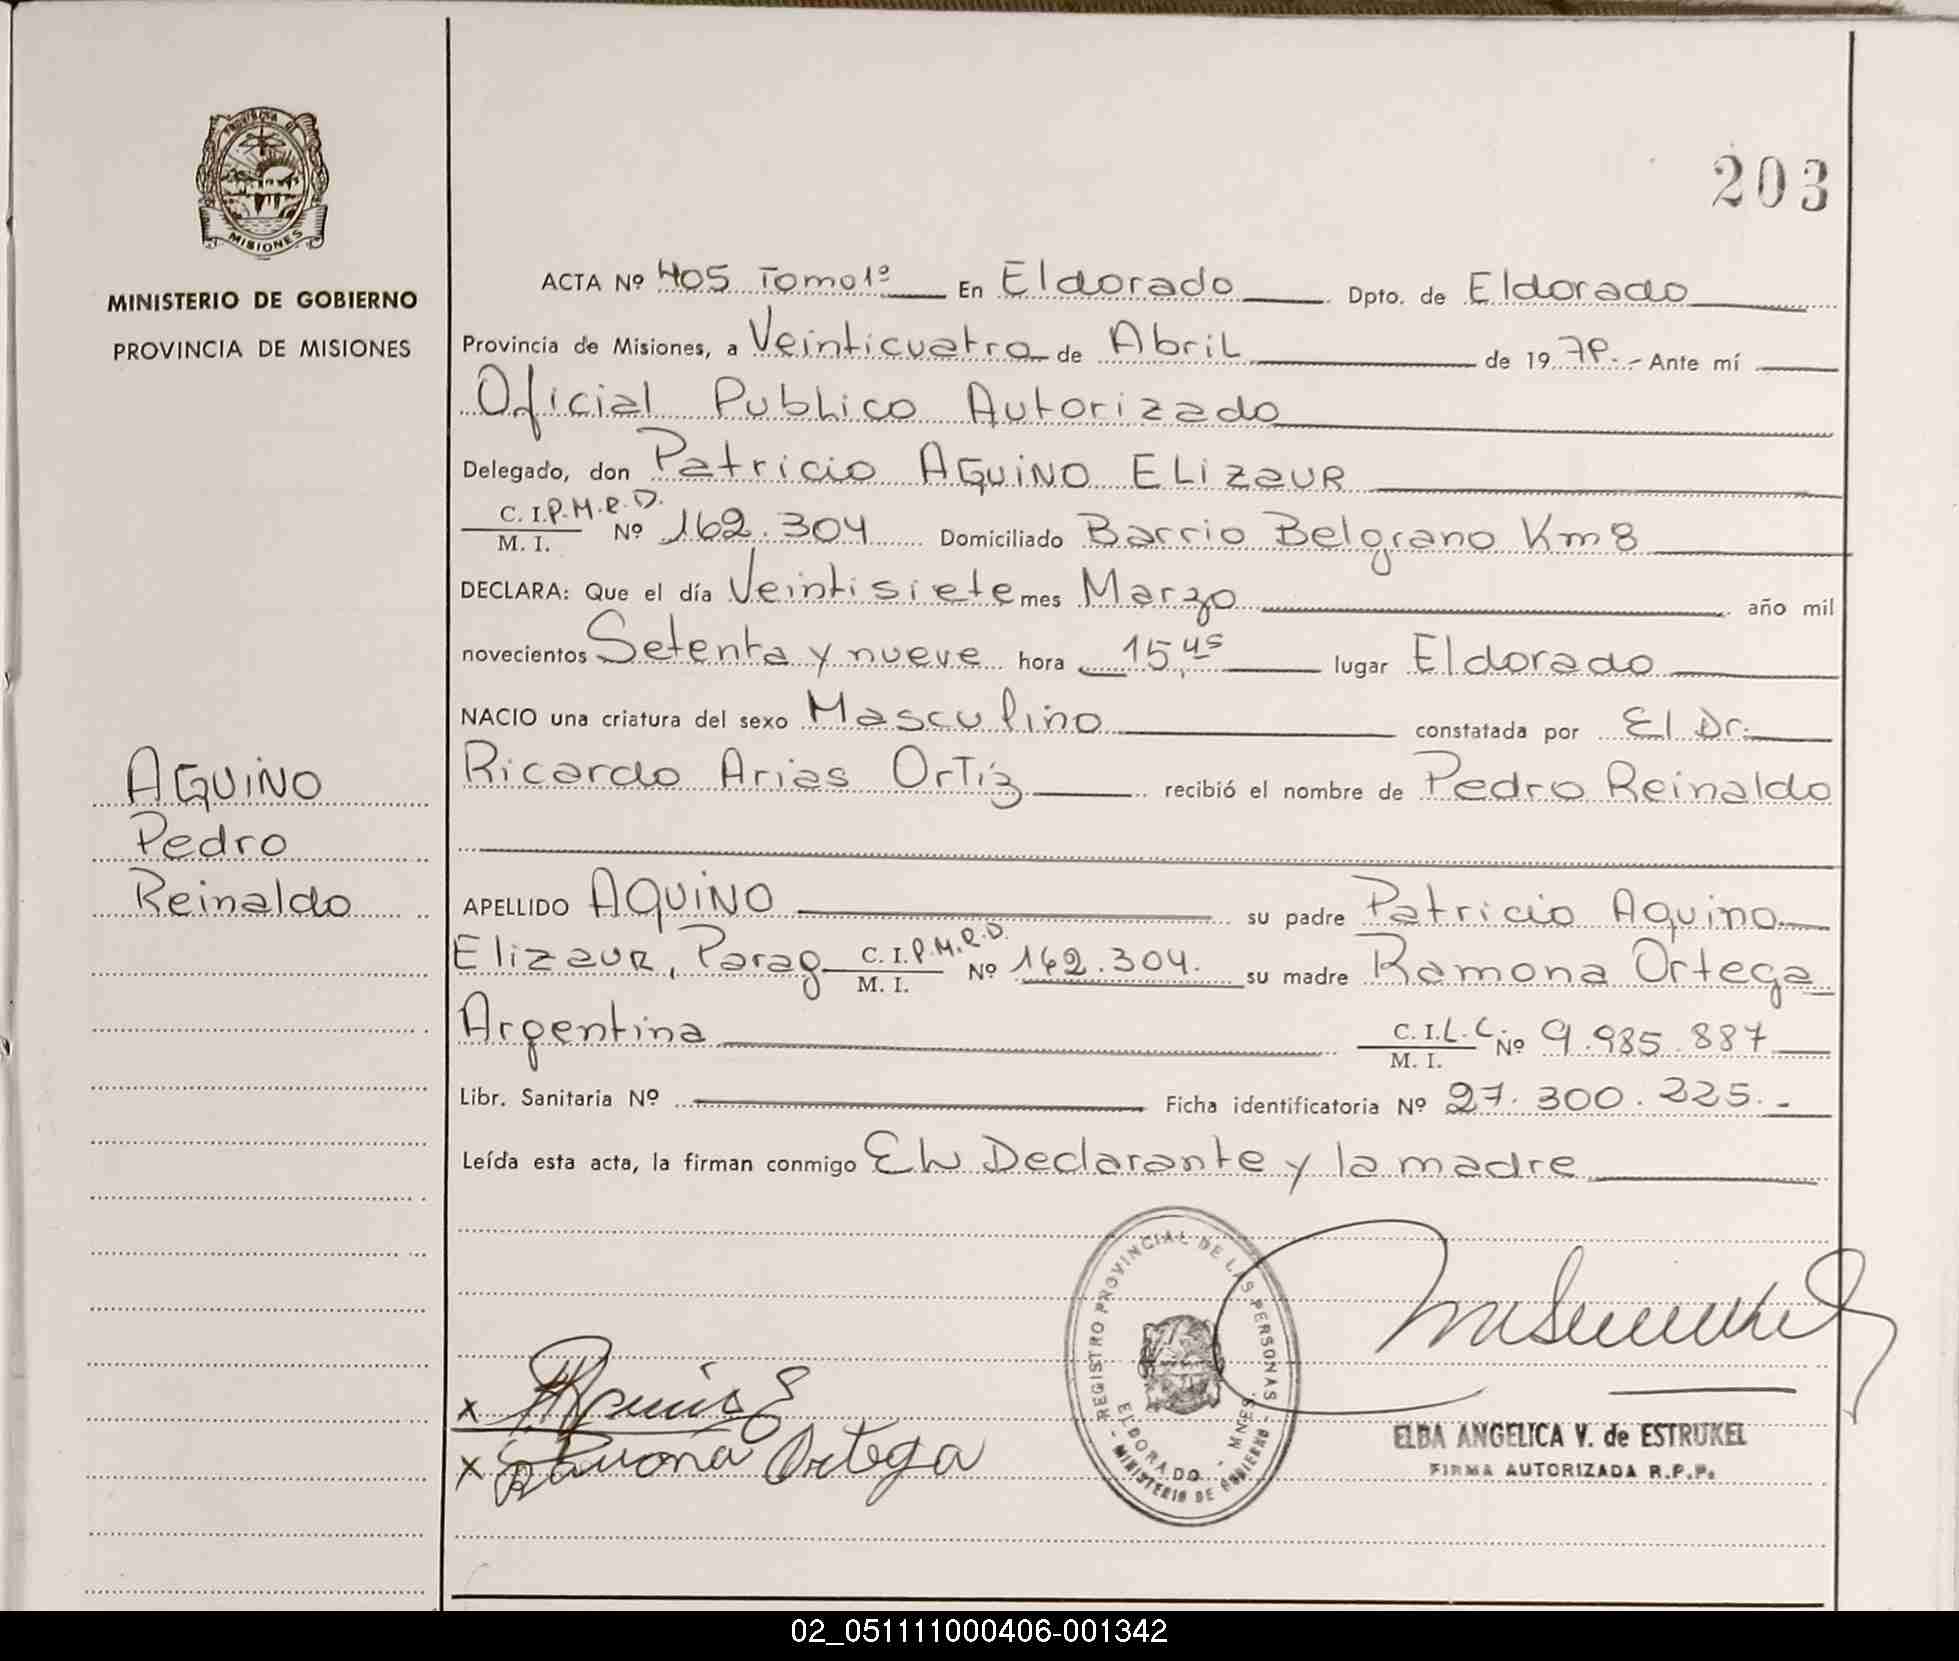 PROVINCIA DE
MISIONES
MINISTERIO DE GOBIERNO
PROVINCIA DE MISIONES
AQUINO
Pedro
Reinaldo
203
ACTA Nº 405 Tomo 1º En Eldorado Dpto. de Eldorado
Provincia de Misiones, a Veinticuatro de Abril de 1979.- Ante mí
Oficial Publico Autorizado
Delegado, don Patricio AQUINO ELIZAUR
C. I. P.M.R.D.
M. I. Nº 162.304 Domiciliado Barrio Belgrano Km 8
DECLARA: Que el día Veintisiete mes Marzo año mil
novecientos Setenta y nueve hora 15,45 lugar Eldorado
NACIO una criatura del sexo Masculino constatada por El Dr.
Ricardo Arias Ortiz recibió el nombre de Pedro Reinaldo
APELLIDO AQUINO su padre Patricio Aquino
Elizaur, Parag C. I. P.M.R.D. M. I. Nº 162.304. su madre Ramona Ortega
Argentina C. I. L.C. M. I. Nº 9.985.887
Libr. Sanitaria Nº Ficha identificatoria Nº 27.300.225.-
Leída esta acta, la firman conmigo El Declarante y la madre
REGISTRO PROVINCIAL DE LAS PERSONAS
ELDORADO - MNES.
- MINISTERIO DE GOBIERNO -
x
x Ramona Ortega
ELBA ANGELICA V. de ESTRUKEL
FIRMA AUTORIZADA R.P.P.
02_051111000406-001342